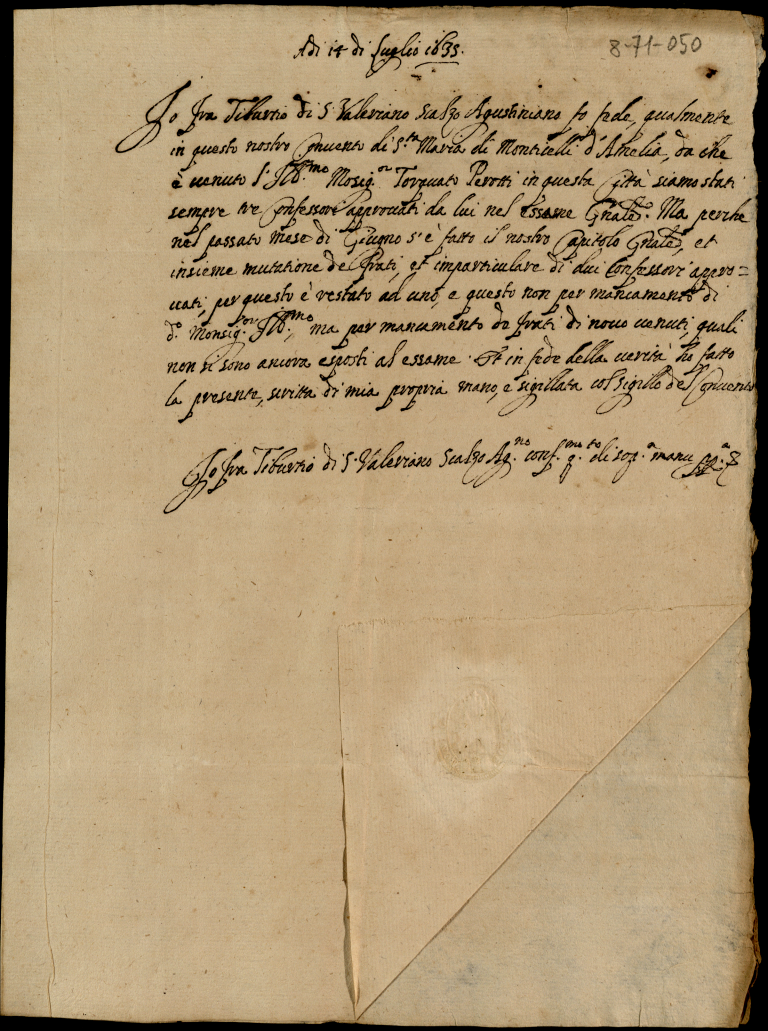 Adi 14 di Luglio 1635.
8-71-050
Io fra Tiburtio di S. Valeriano Scalzo Agustiniano, fo fede, qualmente
in questo nostro Convento di S.ta Maria di Monticelli d'Amelia, da che
è venuto l'Ill.mo Mosig.or Torquato Perotti in questa Città siamo stati
sempre tre Confessori approvati da lui nel essame Gnale. Ma perche
nel passato mese di Giugno s'è fatto il nostro Capitolo Gnale, et
insieme mutatione de Frati, et imparticulare di dui Confessori appro=
vati, per questo è restato ad uno, e questo non per mancamento di
d.o Monsig.or Ill.mo, ma per mancamento de frati di novo venuti, quali
non si sono ancora esposti al essame. Et in fede della verità ho fatto
la presente, scritta di mia propria mano, e sigillata col sigillo del Convento
Io fra Tiburtio di S. Valeriano Scalzo Ag.no conf.mo q.to di sop.a manu pp.a